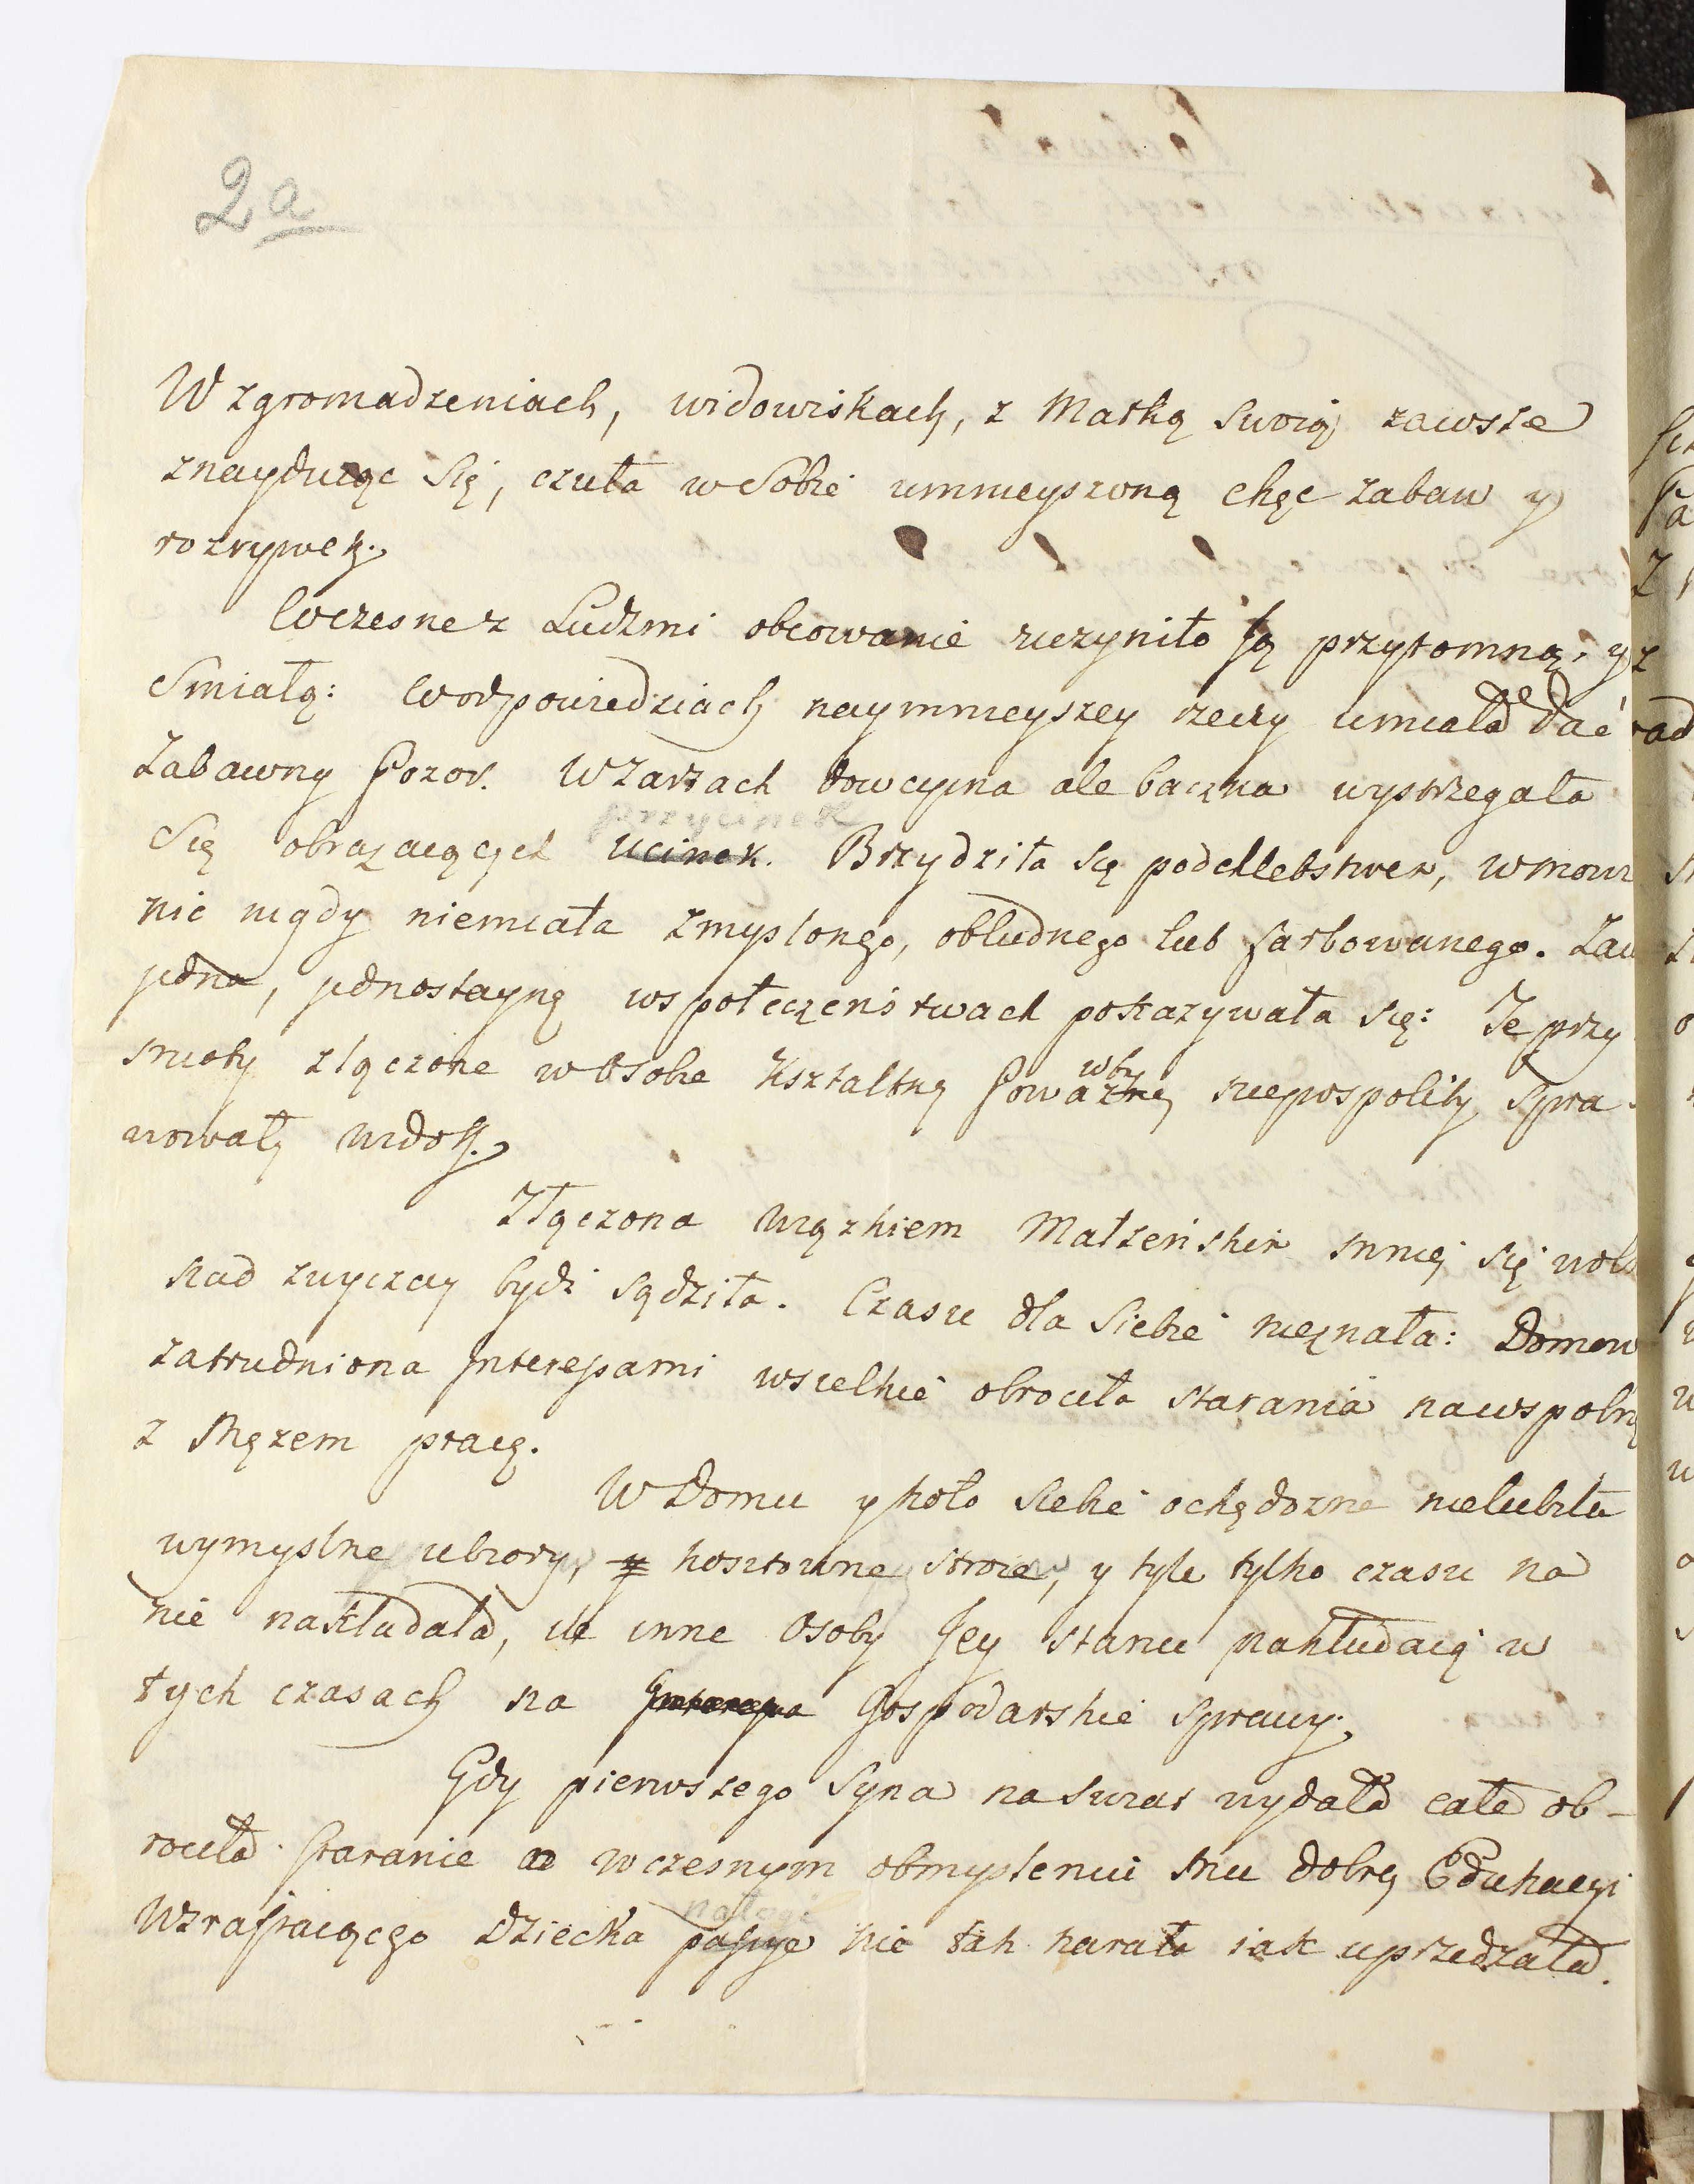 2a
W zgromadzeniach, widowiskach, z Matką swoią zawsze
znayduiąc się, czuła w Sobie umnieyszoną chęc zabaw y
rozrywek.
Wczesne z Ludzmi obcowanie uczyniło Ją przytomną, y
Smiałą: W odpowiedziach naymnieyszey rzeczy umiała dać
Zabawny Pozor. W Zartach dowcipna ale baczna wystrzegała
Się obrazaiących ucinek. Brzydziła się podchlebstwem, w mowi
przycinek
nic nigdy niemiała zmyslonego, obłudnego lub farbowanego. Zaw
jedna, jednostayną w społeczeństwach pokazywała się: Te przy
mioty złączone w Osobie Kształtney Poważney niepospolity spra
wby
wowały widok.
Złączona Węzłem Małżeńskim inney się
nad zwyczay bydź sądziła. Czasu dla Siebie nieznała: Domow
zatrudniona Interessami wszelkie obrociła starania na wspolną
z Mężem pracę.
W Domu y koło Siebie ochędożna nielubiła
wymyslne ubiory, y kosztowne stroie, y tyle tylko czasu na
nie nakładała, ile inne Osoby Jey stanu nakładaią w
tych czasach na Interessa Gospodarskie sprawy.
Gdy pierwszego Syna na swiat wydała całe ob-
rociła staranie w wczesnym obmysleniu mu dobrey Edukacyi
Wzrastaiącego Dziecka passye nie tak karała iak uprzedzała.
nałogi